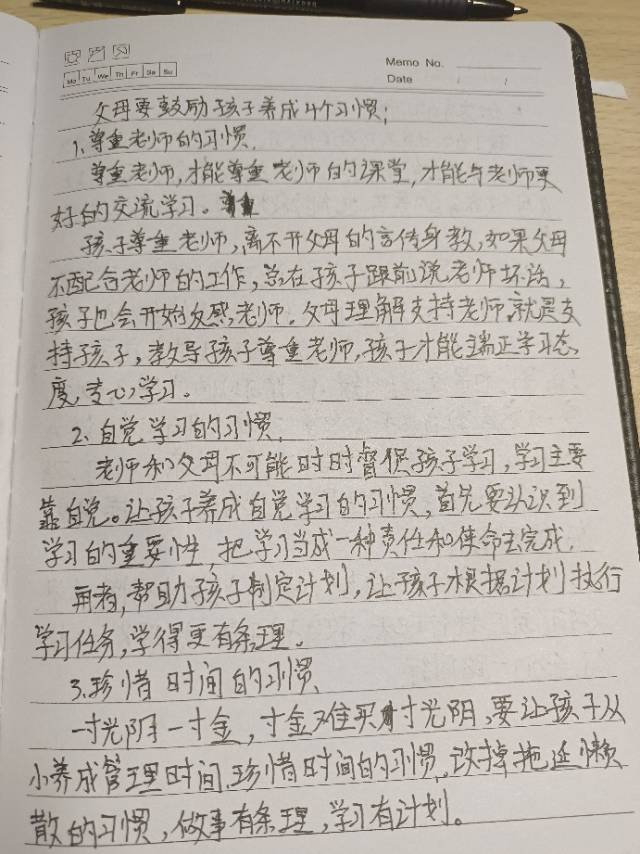 Memo No.
Mo Tu We Th Fr Sa Su
Date / /
父母要鼓励孩子养成4个习惯;
1.尊重老师的习惯.
尊重老师,才能尊重老师的课堂,才能与老师更
好的交流学习。
孩子尊重老师,离不开父母的言传身教,如果父母
不配合老师的工作,总在孩子跟前说老师坏话,
孩子也会开始反感老师.父母理解支持老师,就是支
持孩子,教导孩子尊重老师,孩子才能端正学习态
度,专心学习。
2.自觉学习的习惯.
老师和父母不可能时时督促孩子学习,学习主要
靠自觉。让孩子养成自觉学习的习惯,首先要认识到
学习的重要性,把学习当成一种责任和使命去完成.
再者,帮助孩子制定计划,让孩子根据计划执行
学习任务,学得更有条理。
3.珍惜时间的习惯.
一寸光阴一寸金,寸金难买寸光阴,要让孩子从
小养成管理时间,珍惜时间的习惯,改掉拖延懒
散的习惯,做事有条理,学习有计划。